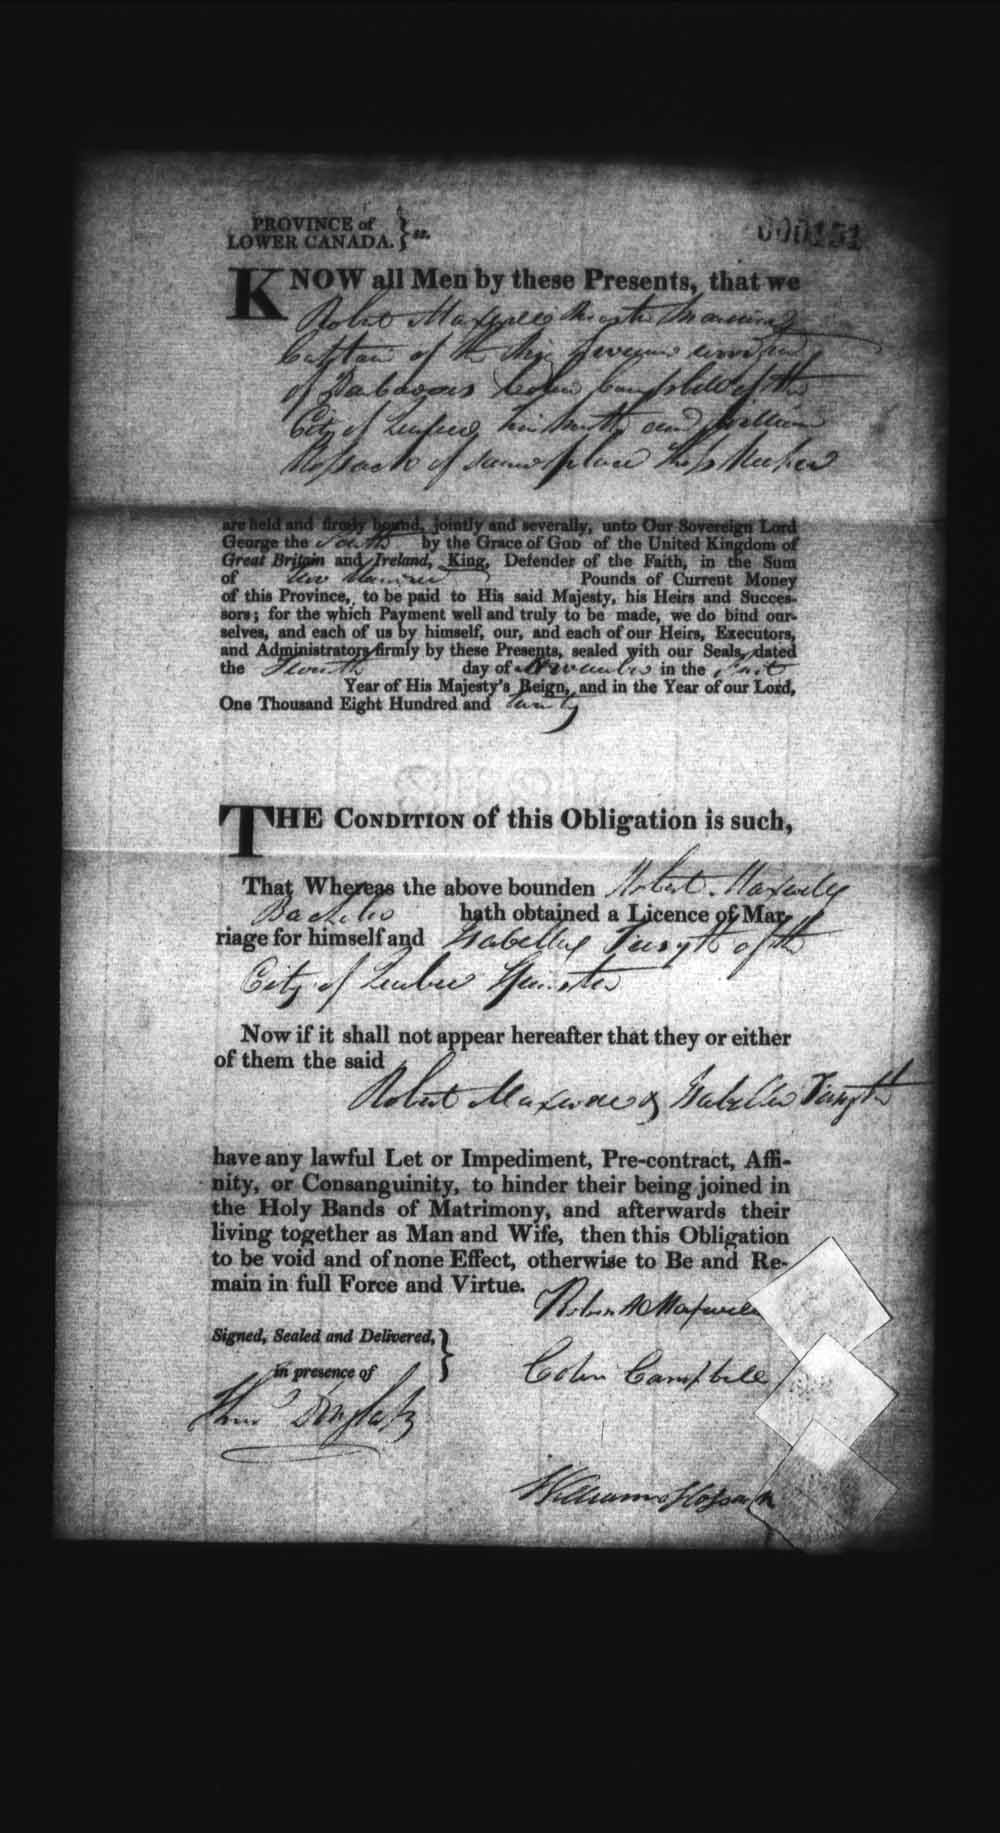 PROVINCE of
LOWER CANADA. } ss.
000151
KNOW all Men by these Presents, that we
Robert Maxwell Master Mariner
Captain of the
of Barbadoes Colin Campbell of the
City of Quebec and William
Hossack of same place Ship
are held and firmly bound, jointly and severally, unto Our Sovereign Lord
George the Fourth by the Grace of GOD of the United Kingdom of
Great Britain and Ireland, King, Defender of the Faith, in the Sum
of two Hundred Pounds of Current Money
of this Province, to be paid to His said Majesty, his Heirs and Succes-
sors; for the which Payment well and truly to be made, we do bind our-
selves, and each of us by himself, our, and each of our Heirs, Executors,
and Administrators firmly by these Presents, sealed with our Seals, dated
the day of November in the first
Year of His Majesty's Reign, and in the Year of our Lord,
One Thousand Eight Hundred and twenty
THE CONDITION of this Obligation is such,
That Whereas the above bounden Robert Maxwell
Bachelor hath obtained a Licence of Mar-
riage for himself and Isabella Forsyth of the
City of Quebec Spinster
Now if it shall not appear hereafter that they or either
of them the said
Robert Maxwell & Isabella Forsyth
have any lawful Let or Impediment, Pre-contract, Affi-
nity, or Consanguinity, to hinder their being joined in
the Holy Bands of Matrimony, and afterwards their
living together as Man and Wife, then this Obligation
to be void and of none Effect, otherwise to Be and Re-
main in full Force and Virtue.
Robert Maxwell
Signed, Sealed and Delivered, }
in presence of
Colin Campbell
Thos Douglass
William Hossack